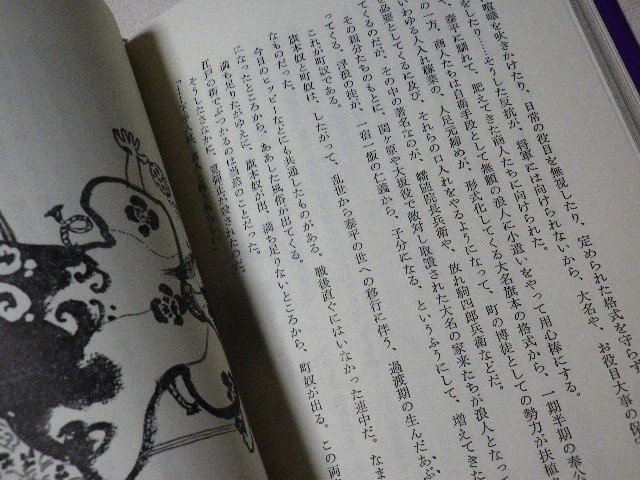 喧嘩を吹きかけたり、日常の役目を無視したり、定められた格式を守らず
をしたり……そうした反抗が、将軍には向けられないから、大名や、お役目大事の保
泰平に馴れて、肥えてきた商人たちに向けられた。
の一方、商人たちは自衛手段として無頼の浪人に小遣いをやって用心棒にする。
いわゆる人入れ稼業の、人足元締めが、形式化してくる大名旗本の格式から、一期半期の奉公
必要としてくるに及び、それらの口入れをやるようになって、町の博徒としての勢力が扶植
てくるのだが、その中の著名なのが、幡随院長兵衛や、放れ駒四郎兵衛などだ。
その親分たちのもとに、関ヶ原や大坂役で敵対し取潰された大名の家来たちが浪人となって
ってくる。浮浪の徒が、一宿一飯の仁義から、子分になる、というふうにして、増えてきた
これが町奴である。
旗本奴と町奴は、したがって、乱世から泰平の世への移行に伴う、過渡期の生んだあぶ
なものだった。
今日のヒッピーなどにも共通したものがある。戦後直ぐにはいなかった連中だ。なま
になったところから、ああした風俗が出てくる。
満ち足りたがゆえに、旗本奴が出、満ち足りないところから、町奴が出る。この両
江戸の街でぶつかるのは当然のことだった。
そうしたさなかに、